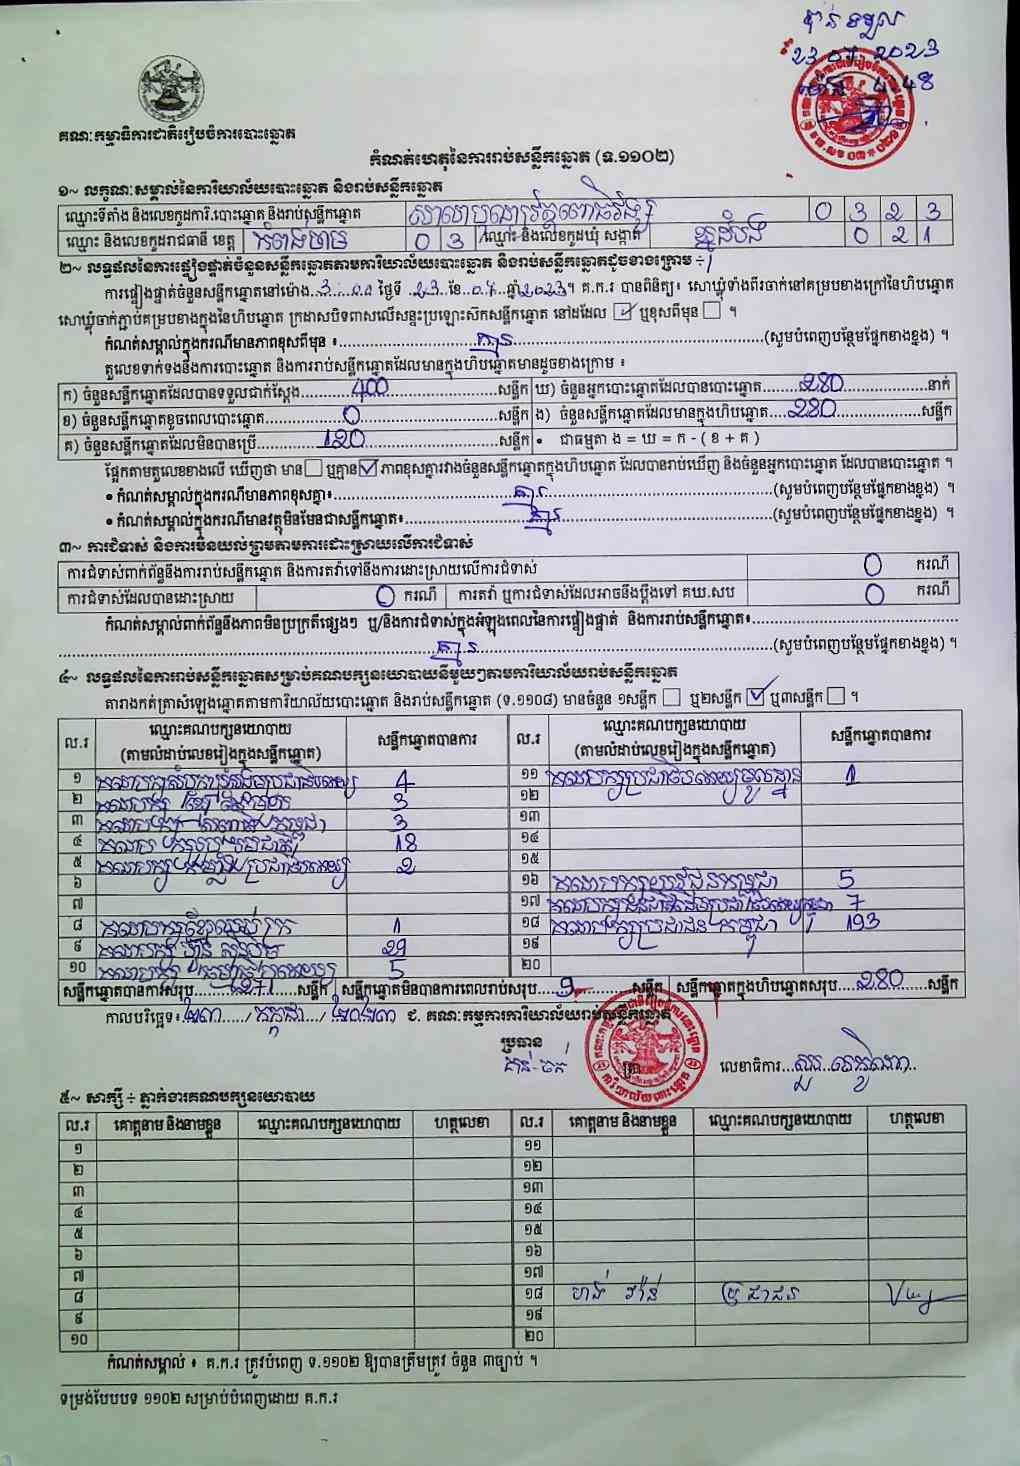 បានទទួល
23 07 2023
ម៉ោង 4:48
គណៈកម្មាធិការជាតិរៀបចំការបោះឆ្នោត
កំណត់ហេតុនៃការរាប់សន្លឹកឆ្នោត (ទ.១១០២)
១~ លក្ខណៈសម្គាល់នៃការិយាល័យបោះឆ្នោត និងរាប់សន្លឹកឆ្នោត
ឈ្មោះទីតាំង និងលេខកូដការិ.បោះឆ្នោត និងរាប់សន្លឹកឆ្នោត 0 3 2 3
ឈ្មោះ និងលេខកូដរាជធានី ខេត្ត កំពង់ចាម 0 3 ឈ្មោះ និងលេខកូដឃុំ សង្កាត់ 0 2 1
២~ លទ្ធផលនៃការផ្ទៀងផ្ទាត់ចំនួនសន្លឹកឆ្នោតតាមការិយាល័យបោះឆ្នោត និងរាប់សន្លឹកឆ្នោតដូចខាងក្រោម ៖
ការផ្ទៀងផ្ទាត់ចំនួនសន្លឹកឆ្នោតនៅម៉ោង 3:00 ថ្ងៃទី 23 ខែ 07 ឆ្នាំ 2023។ គ.ក.រ បានពិនិត្យ៖ សោឃ្លុំទាំងពីរចាក់នៅគម្របខាងក្រៅនៃហិបឆ្នោត
សោឃ្លុំចាក់ភ្ជាប់គម្របខាងក្នុងនៃហិបឆ្នោត ក្រដាសបិទពាសលើសន្ទះប្រឡោះស៊កសន្លឹកឆ្នោត នៅដដែល ☑ ឬខុសពីមុន ☐ ។
កំណត់សម្គាល់ក្នុងករណីមានភាពខុសពីមុន ៖ គ្មាន (សូមបំពេញបន្ថែមផ្នែកខាងខ្នង) ។
តួលេខទាក់ទងនឹងការបោះឆ្នោត និងការរាប់សន្លឹកឆ្នោតដែលមានក្នុងហិបឆ្នោតមានដូចខាងក្រោម ៖
ក) ចំនួនសន្លឹកឆ្នោតដែលបានទទួលជាក់ស្តែង 400 សន្លឹក ឃ) ចំនួនអ្នកបោះឆ្នោតដែលបានបោះឆ្នោត 280 នាក់
ខ) ចំនួនសន្លឹកឆ្នោតខូចពេលបោះឆ្នោត 0 សន្លឹក ង) ចំនួនសន្លឹកឆ្នោតដែលមានក្នុងហិបឆ្នោត 280 សន្លឹក
គ) ចំនួនសន្លឹកឆ្នោតដែលមិនបានប្រើ 120 សន្លឹក • ជាធម្មតា ង = ឃ = ក - ( ខ + គ )
ផ្អែកតាមតួលេខខាងលើ ឃើញថា មាន ☐ ឬគ្មាន ☑ ភាពខុសគ្នារវាងចំនួនសន្លឹកឆ្នោតក្នុងហិបឆ្នោត ដែលបានរាប់ឃើញ និងចំនួនអ្នកបោះឆ្នោត ដែលបានបោះឆ្នោត ។
• កំណត់សម្គាល់ក្នុងករណីមានភាពខុសគ្នា៖ គ្មាន (សូមបំពេញបន្ថែមផ្នែកខាងខ្នង) ។
• កំណត់សម្គាល់ក្នុងករណីមានវត្ថុមិនមែនជាសន្លឹកឆ្នោត៖ គ្មាន (សូមបំពេញបន្ថែមផ្នែកខាងខ្នង) ។
៣~ ការជំទាស់ និងការមិនយល់ព្រមតាមការដោះស្រាយលើការជំទាស់
ការជំទាស់ពាក់ព័ន្ធនឹងការរាប់សន្លឹកឆ្នោត និងការតវ៉ាទៅនឹងការដោះស្រាយលើការជំទាស់ 0 ករណី
ការជំទាស់ដែលបានដោះស្រាយ 0 ករណី ការតវ៉ា ឬការជំទាស់ដែលអាចនឹងប្តឹងទៅ គឃ.សប 0 ករណី
កំណត់សម្គាល់ពាក់ព័ន្ធនឹងភាពមិនប្រក្រតីផ្សេងៗ ឬ/និងការជំទាស់ក្នុងអំឡុងពេលនៃការផ្ទៀងផ្ទាត់ និងការរាប់សន្លឹកឆ្នោត៖
គ្មាន (សូមបំពេញបន្ថែមផ្នែកខាងខ្នង) ។
៤~ លទ្ធផលនៃការរាប់សន្លឹកឆ្នោតសម្រាប់គណបក្សនយោបាយនីមួយៗតាមការិយាល័យរាប់សន្លឹកឆ្នោត
តារាងកត់ត្រាសំឡេងឆ្នោតតាមការិយាល័យបោះឆ្នោត និងរាប់សន្លឹកឆ្នោត (ទ.១១០៨) មានចំនួន ១សន្លឹក ☐ ឬ២សន្លឹក ☑ ឬ៣សន្លឹក ☐ ។
ល.រ ឈ្មោះគណបក្សនយោបាយ (តាមលំដាប់លេខរៀងក្នុងសន្លឹកឆ្នោត) សន្លឹកឆ្នោតបានការ ល.រ ឈ្មោះគណបក្សនយោបាយ (តាមលំដាប់លេខរៀងក្នុងសន្លឹកឆ្នោត) សន្លឹកឆ្នោតបានការ
១ 4 ១១ គណបក្សប្រជាធិបតេយ្យមូលដ្ឋាន 1
២ គណបក្ស 3 ១២
៣ គណបក្ស 3 ១៣
៤ 18 ១៤
៥ គណបក្សកម្លាំងប្រជាធិបតេយ្យ 2 ១៥
៦ ១៦ គណបក្សយុវជនកម្ពុជា 5
៧ ១៧ 7
៨ គណបក្ស 1 ១៨ គណបក្សប្រជាជនកម្ពុជា 193
៩ គណបក្សហ្វ៊ុនស៊ិនប៉ិច 29 ១៩
១០ គណបក្ស 5 ២០
សន្លឹកឆ្នោតបានការសរុប 271 សន្លឹក សន្លឹកឆ្នោតមិនបានការពេលរាប់សរុប 9 សន្លឹក សន្លឹកឆ្នោតក្នុងហិបឆ្នោតសរុប 280 សន្លឹក
កាលបរិច្ឆេទ៖ ២៣ / កក្កដា / ២០២៣ ជ. គណៈកម្មការការិយាល័យរាប់សន្លឹកឆ្នោត
ប្រធាន ត្រា លេខាធិការ
៥~ សាក្សី ៖ ភ្នាក់ងារគណបក្សនយោបាយ
ល.រ គោត្តនាម និងនាមខ្លួន ឈ្មោះគណបក្សនយោបាយ ហត្ថលេខា ល.រ គោត្តនាម និងនាមខ្លួន ឈ្មោះគណបក្សនយោបាយ ហត្ថលេខា
១ ១១
២ ១២
៣ ១៣
៤ ១៤
៥ ១៥
៦ ១៦
៧ ១៧
៨ ១៨ ប្រជាជន
៩ ១៩
១០ ២០
កំណត់សម្គាល់ ៖ គ.ក.រ ត្រូវបំពេញ ទ.១១០២ ឱ្យបានត្រឹមត្រូវ ចំនួន ៣ច្បាប់ ។
ទម្រង់បែបបទ ១១០២ សម្រាប់បំពេញដោយ គ.ក.រ